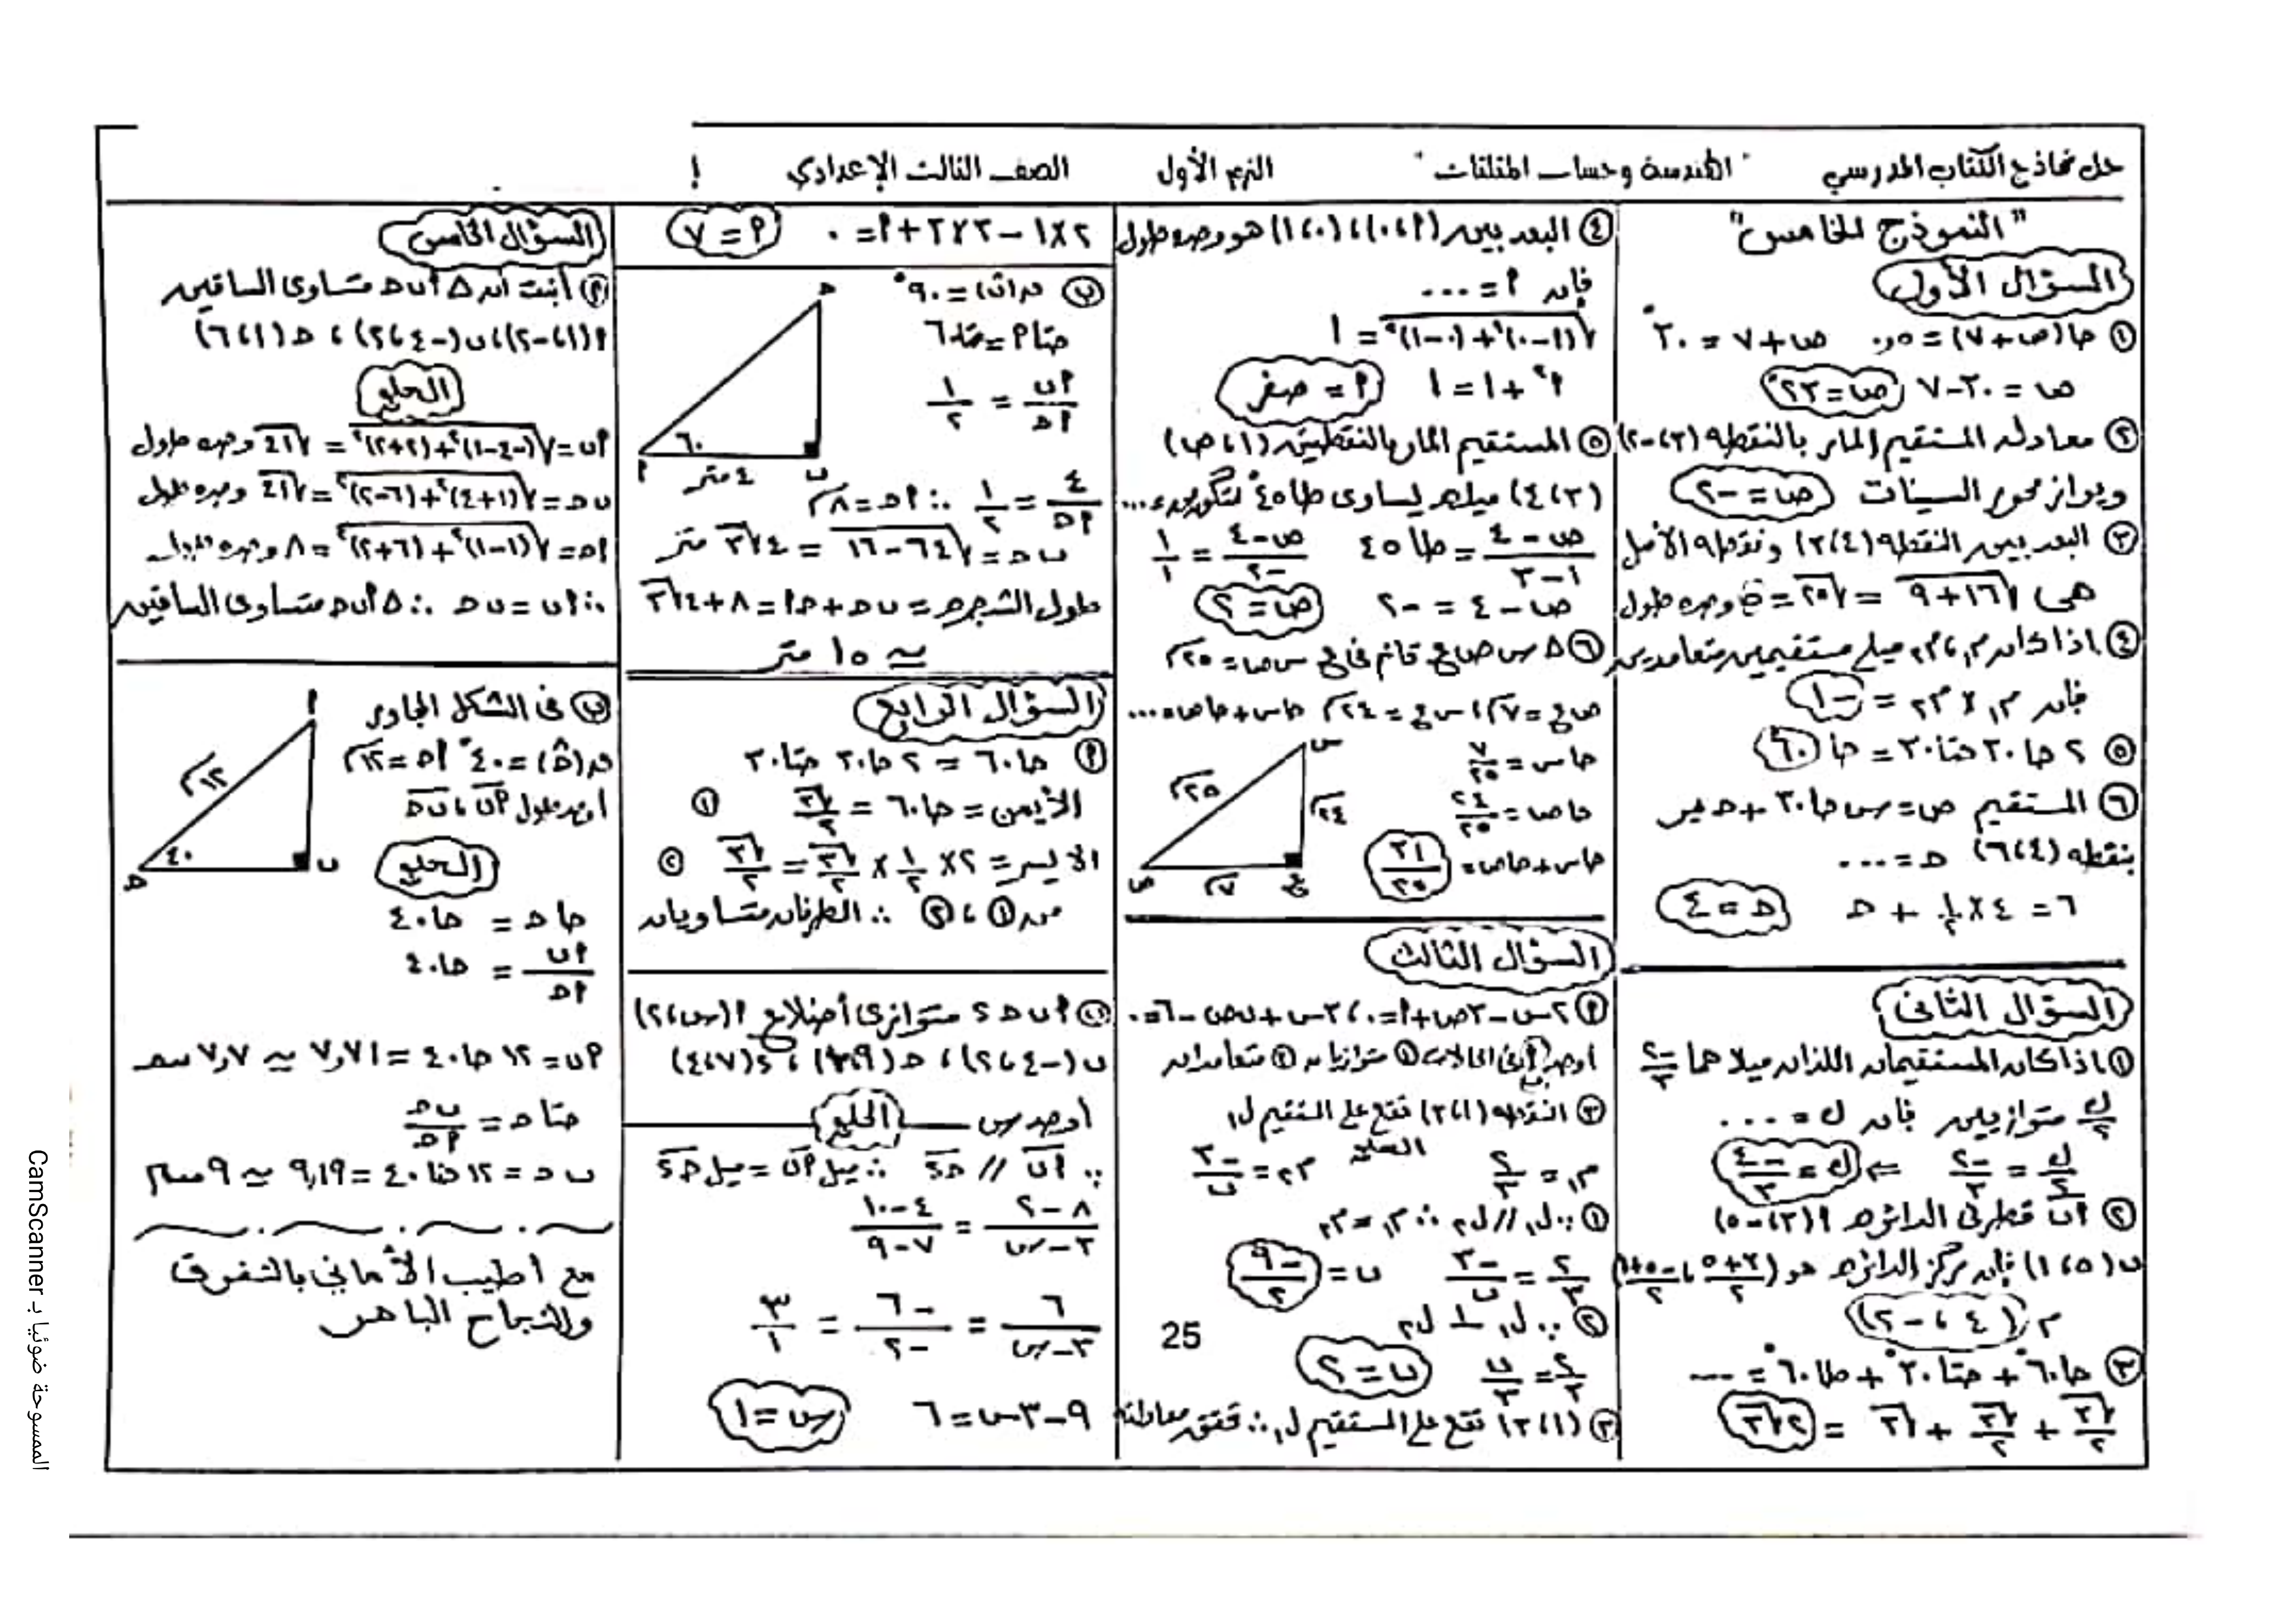 حل نماذج الكتاب المدرسي "الهندسة وحساب المثلثات" الترم الأول الصف الثالث الإعدادي
"النموذج الخامس"
السؤال الأول
① حا(ص+٧)=٥,. ص+٧ = ٣٠°
ص = ٣٠-٧ ص=٢٣°
② معادلة المستقيم المار بالنقطة (٣،-٢)
ويوازى محور السينات ص=-٢
③ البعد بين النقطة (٣،٤) ونقطة الأصل
هى √١٦+٩ = √٢٥ = ٥ وحدة طول
④ اذا كان م١، م٢ ميلى مستقيمين متعامدين
فإن م١ × م٢ = -١
⑤ ٢ حا٣٠ حتا٣٠ = حا ٦٠
⑥ المستقيم ص = س حا٣٠ + ح يمر
بنقطة (٦،٤) ح = ...
٦ = ٤ × ١/٢ + ح ح = ٤
السؤال الثانى
① اذا كان المستقيمان اللذان ميلاهما -٢/٣
ك/٢ متوازيين فإن ك = ....
ك/٢ = -٢/٣ ⇐ ك = -٤/٣
② أب قطر فى الدائرة م أ(٣،-٥)
ب(١،٥) فإن مركز الدائرة هو (٣+٥/٢ ، -٥+١/٢)
م (٤ ، -٢)
③ حا٦٠° + حتا٣٠° + طا٦٠° = ....
√٣/٢ + √٣/٢ + √٣ = ٢√٣
④ البعد بين (٠،أ)،(١،٠) هو وحدة طول
فإن أ = ...
√(أ-٠)²+(٠-١)² = ١
أ²+١ = ١ أ = صفر
⑤ المستقيم المار بالنقطتين (١،ص)
(٤،٣) ميله يساوى طا٤٥° لتكون ص = ...
ص-٤/١-٣ = طا٤٥ ص-٤/-٢ = ١/١
ص-٤ = -٢ ص=٢
⑥ Δ س ص ع قائم فى ع س ص = ٢٥سم
ص ع = ٧سم، س ع = ٢٤سم حاس+حاص=...
حاس = ٧/٢٥
حاص = ٢٤/٢٥
حاس+حاص = ٣١/٢٥
س ٢٥سم ٢٤سم ص ٧سم ع
السؤال الثالث
أ ٢س-٣ص+أ=٠، ٣س+ب ص-٦=٠
أوجد ب فى الحالات ① متوازيان ② متعامدان
③ النقطة (٣،١) تقع على المستقيم ل١
الحل
م١ = ٢/٣ م٢ = -٣/ب
① ∵ ل١ // ل٢ ∴ م١ = م٢
٢/٣ = -٣/ب ب = -٩/٢
② ∵ ل١ ⊥ ل٢
٢/٣ = ب/٣ ب=٢
③ (٣،١) تقع على المستقيم ل١ ∴ تحقق معادلته
25
٢×١-٣×٣+أ=٠ أ=٧
ب ق(ب)=٩٠°
حتا أ = حتا٦٠
أب/أح = ١/٢
٤/أح = ١/٢ ∴ أح = ٨م
ب ح = √٦٤-١٦ = ٤√٣ متر
طول الشجرة = ب ح + أح = ٨+٤√٣
≃ ١٥ متر
ح ٦٠ أ ٤متر ب
السؤال الرابع
أ حا٦٠ = ٢ حا٣٠ حتا٣٠
الأيمن = حا٦٠ = √٣/٢ ①
الايسر = ٢×١/٢×√٣/٢ = √٣/٢ ②
من ①، ② ∴ الطرفان متساويان
ب أ ب ح د متوازى أضلاع أ(س،٢)
ب(-٤،٢)، ح(٩،١٠)، د(٤،٧)
أوجد س الحل
∵ أب // ح د ∴ ميل أب = ميل ح د
٨-٢/٣-س = ٤-١٠/٧-٩
٦/٣-س = -٦/-٢ = ٣/١
٩-٣س=٦ س=١
السؤال الخامس
أ أثبت أن Δ أ ب ح متساوى الساقين
أ(١،-٢)، ب(-٤،٢)، ح(٦،١)
الحل
أب = √(-٤-١)²+(٢+٢)² = √٤١ وحدة طول
ب ح = √(١+٤)²+(٦-٢)² = √٤١ وحدة طول
أح = √(١-١)²+(٦+٢)² = ٨ وحدة طول
∴ أب = ب ح ∴ Δ أ ب ح متساوى الساقين
ب فى الشكل المجاور
ق(ح)=٤٠° أح=١٢سم
أوجد طول أب، ب ح
الحل
حا ح = حا٤٠
أب/أح = حا٤٠
أ ١٢سم ٤٠ ح ب
أب = ١٢ حا٤٠ = ٧,٧١ ≃ ٧,٧ سم
حتا ح = ب ح/أح
ب ح = ١٢ حتا٤٠ = ٩,١٩ ≃ ٩ سم
مع أطيب الأماني بالتفوق
والنجاح الباهر
الممسوحة ضوئيا بـ CamScanner